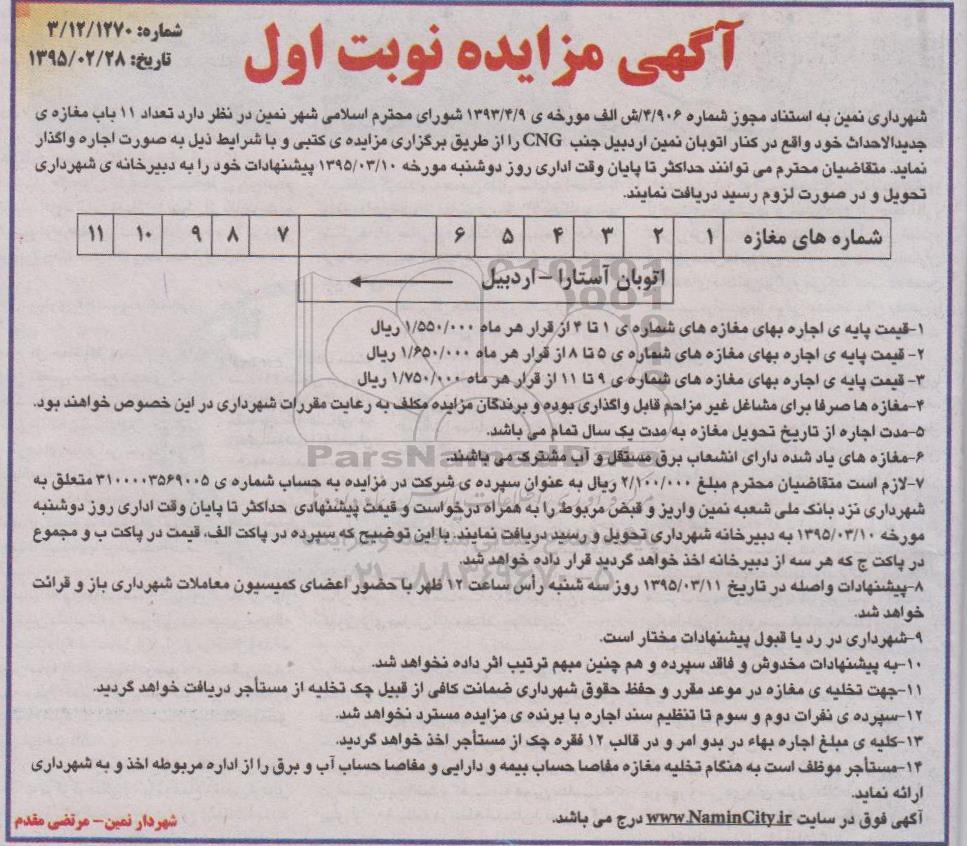 شماره: ۳/۱۲/۱۲۷۰
تاریخ: ۱۳۹۵/۰۲/۲۸
آگهی مزایده نوبت اول
شهرداری نمین به استناد مجوز شماره ۴/۹۰۶/ش الف مورخه ی ۱۳۹۳/۴/۹ شورای محترم اسلامی شهر نمین در نظر دارد تعداد ۱۱ باب مغازه ی
جدیدالاحداث خود واقع در کنار اتوبان نمین اردبیل جنب CNG را از طریق برگزاری مزایده ی کتبی و با شرایط ذیل به صورت اجاره واگذار
نماید. متقاضیان محترم می توانند حداکثر تا پایان وقت اداری روز دوشنبه مورخه ۱۳۹۵/۰۳/۱۰ پیشنهادات خود را به دبیرخانه ی شهرداری
تحویل و در صورت لزوم رسید دریافت نمایند
شماره های مغازه ۱ ۲ ۳ ۴ ۵ ۶ ۷ ۸ ۹ ۱۰ ۱۱
اتوبان آستارا – اردبیل
۱-قیمت پایه ی اجاره بهای مغازه های شماره ی ۱ تا ۴ از قرار هر ماه ۱/۵۵۰/۰۰۰ ریال
۲- قیمت پایه ی اجاره بهای مغازه های شماره ی ۵ تا ۸ از قرار هر ماه ۱/۶۵۰/۰۰۰ ریال
۳- قیمت پایه ی اجاره بهای مغازه های شماره ی ۹ تا ۱۱ از قرار هر ماه ۱/۷۵۰/۰۰۰ ریال
۴-مغازه ها صرفا برای مشاغل غیر مزاحم قابل واگذاری بوده و برندگان مزایده مکلف به رعایت مقررات شهرداری در این خصوص خواهند بود.
۵-مدت اجاره از تاریخ تحویل مغازه به مدت یک سال تمام می باشد.
۶-مغازه های یاد شده دارای انشعاب برق مستقل و آب مشترک می باشند.
ParsNamadData
۷-لازم است متقاضیان محترم مبلغ ۲/۱۰۰/۰۰۰ ریال به عنوان سپرده ی شرکت در مزایده به حساب شماره ی ۳۱۰۰۰۰۳۵۶۹۰۰۵ متعلق به
شهرداری نزد بانک ملی شعبه نمین واریز و قبض مربوط را به همراه درخواست و قیمت پیشنهادی حداکثر تا پایان وقت اداری روز دوشنبه
مورخه ۱۳۹۵/۰۳/۱۰ به دبیرخانه شهرداری تحویل و رسید دریافت نمایند. با این توضیح که سپرده در پاکت الف، قیمت در پاکت ب و مجموع
در پاکت ج که هر سه از دبیرخانه اخذ خواهد گردید قرار داده خواهد شد.
۸-پیشنهادات واصله در تاریخ ۱۳۹۵/۰۳/۱۱ روز سه شنبه رأس ساعت ۱۲ ظهر با حضور اعضای کمیسیون معاملات شهرداری باز و قرائت
خواهد شد.
۹-شهرداری در رد یا قبول پیشنهادات مختار است.
۱۰-به پیشنهادات مخدوش و فاقد سپرده و هم چنین مبهم ترتیب اثر داده نخواهد شد.
۱۱-جهت تخلیه ی مغازه در موعد مقرر و حفظ حقوق شهرداری ضمانت کافی از قبیل چک تخلیه از مستأجر دریافت خواهد گردید.
۱۲-سپرده ی نفرات دوم و سوم تا تنظیم سند اجاره با برنده ی مزایده مسترد نخواهد شد.
۱۳-کلیه ی مبلغ اجاره بهاء در بدو امر و در قالب ۱۲ فقره چک از مستأجر اخذ خواهد گردید.
۱۴-مستأجر موظف است به هنگام تخلیه مغازه مفاصا حساب بیمه و دارایی و مفاصا حساب آب و برق را از اداره مربوطه اخذ و به شهرداری
ارائه نماید.
آگهی فوق در سایت www.NaminCity.ir درج می باشد.
شهردار نمین- مرتضی مقدم